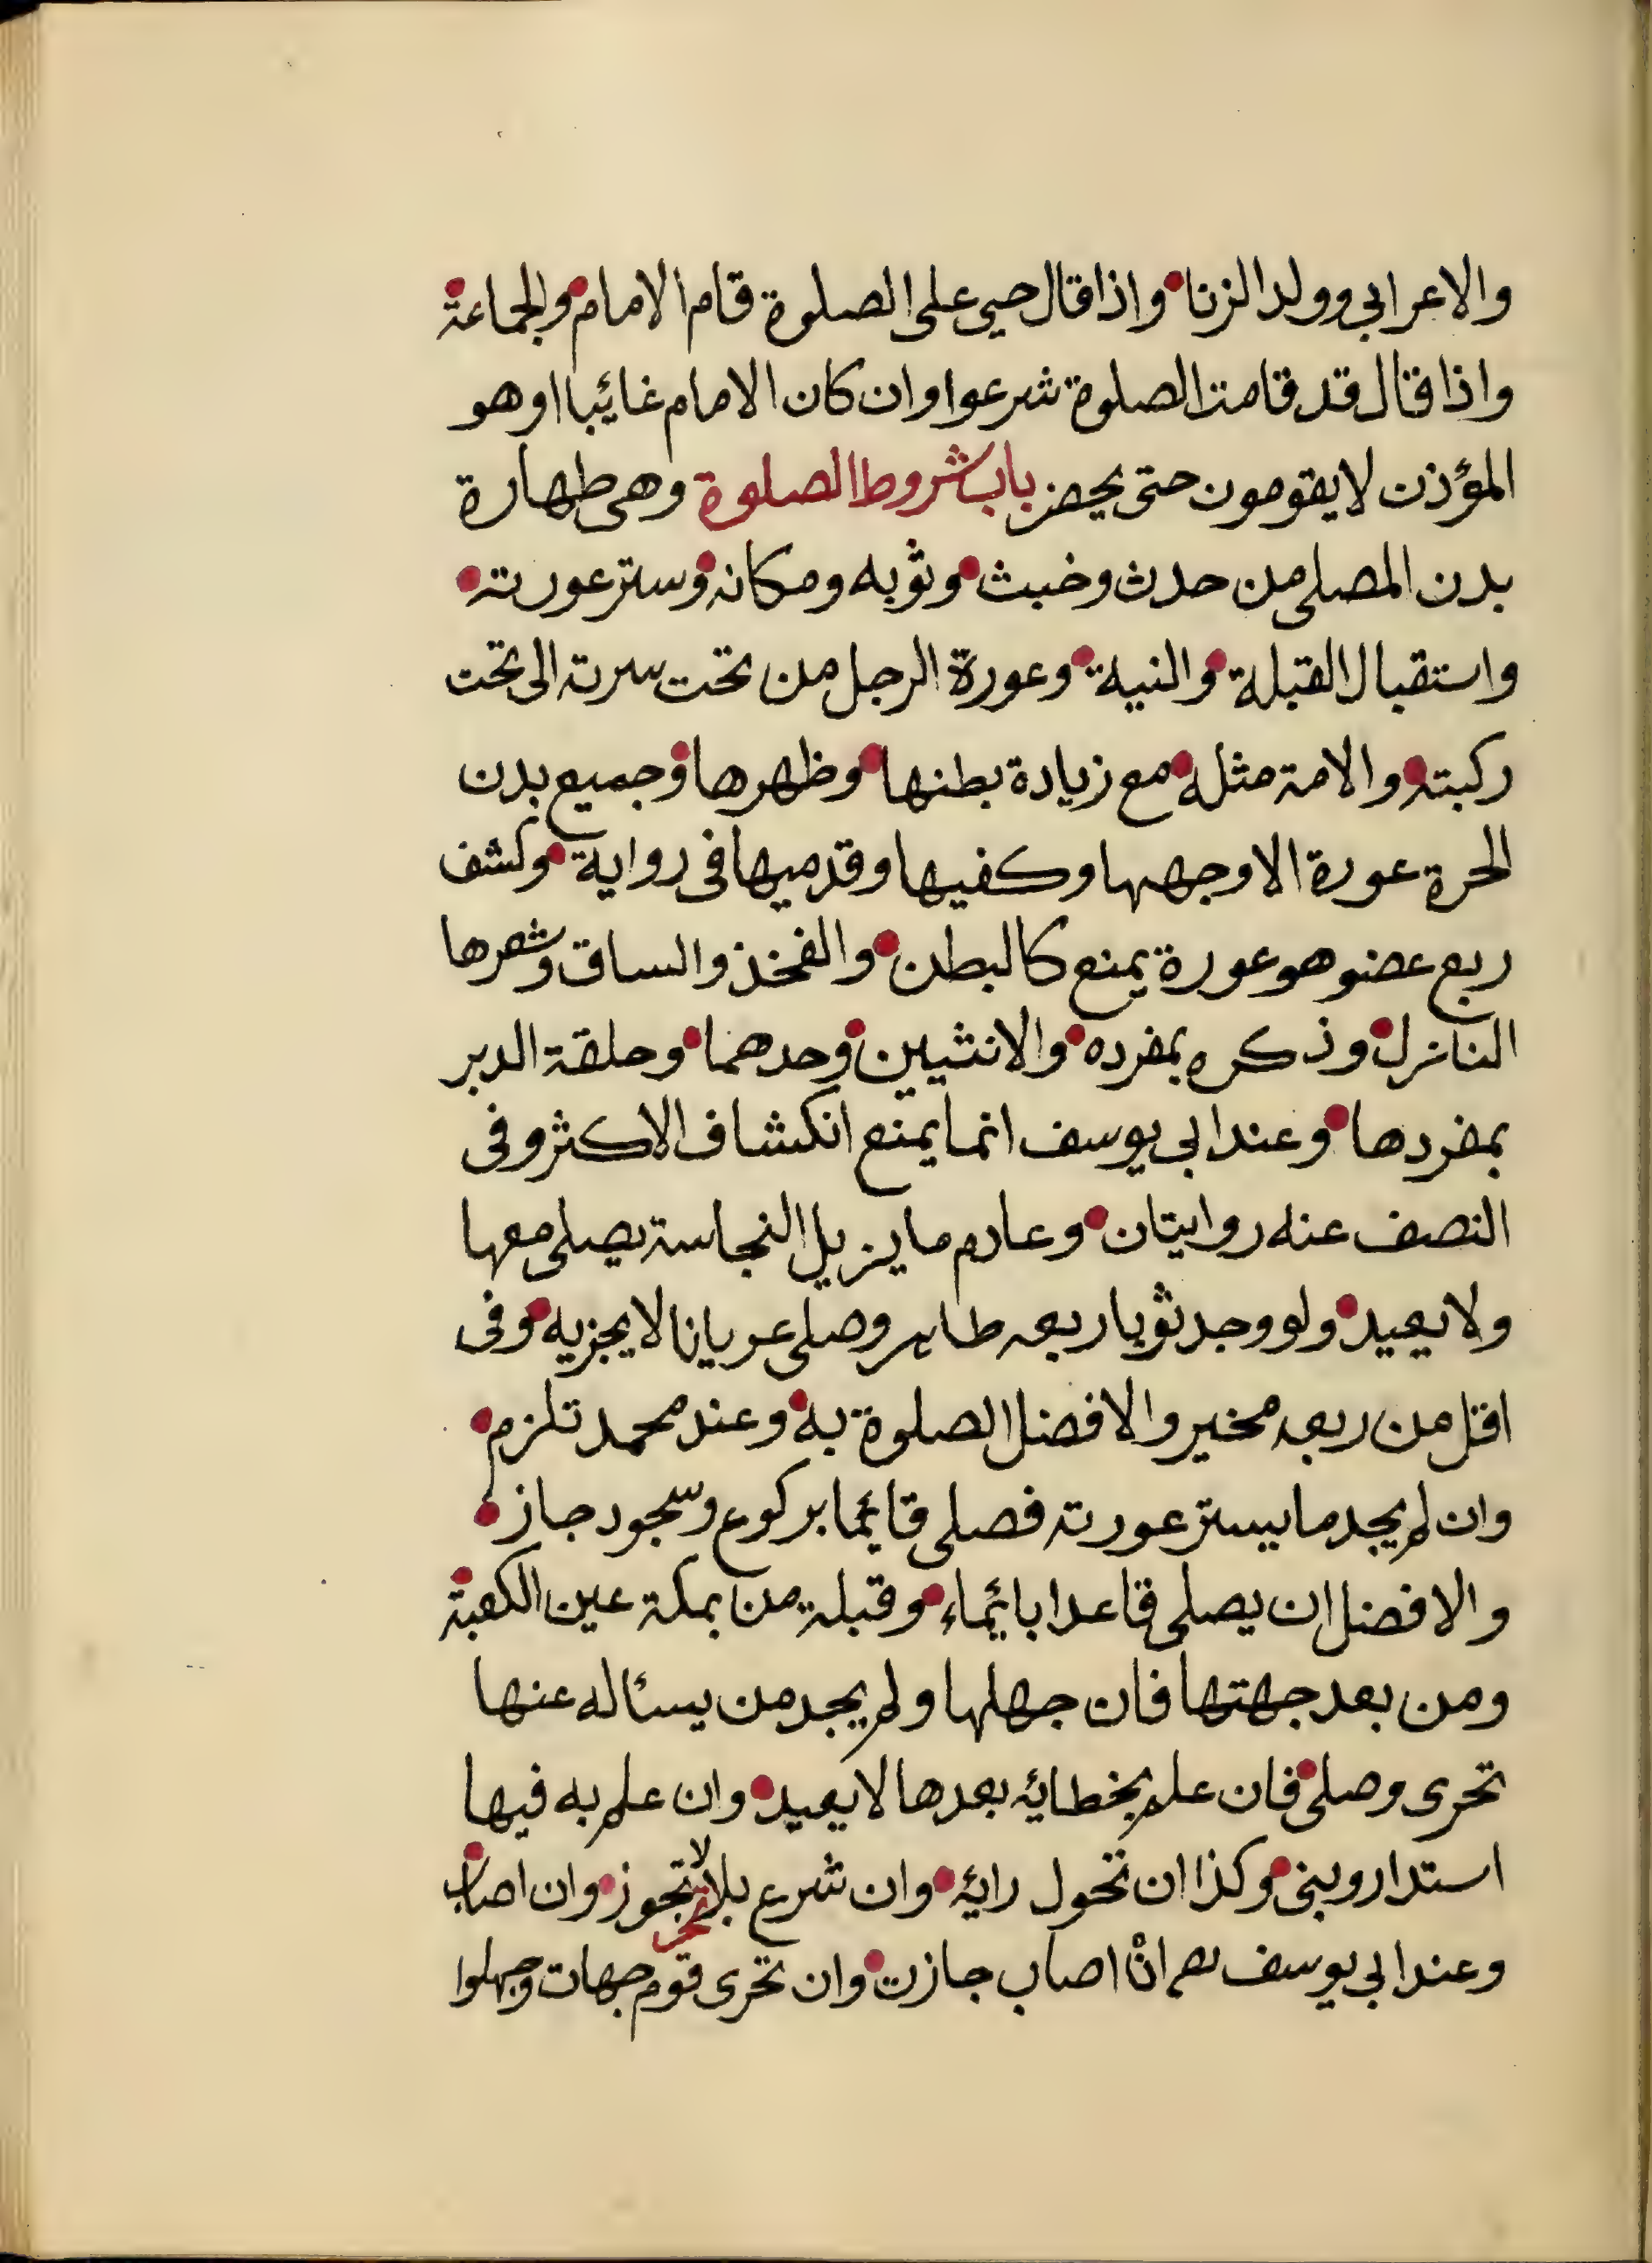 والاعرابي وولد الزنا واذا قال حي على الصلوة قام الامام والجماعة
واذا قال قد قامت الصلوة شرعوا وان كان الامام غائبا او هو
المؤذن لا يقومون حتى يحضر باب شروط الصلوة وهى طهارة
بدن المصلى من حدث وخبث وثوبه ومكانه وستر عورته
واستقبال القبلة والنية وعورة الرجل من تحت سرته الى تحت
ركبته والامة مثله مع زيادة بطنها وظهرها وجميع بدن
الحرة عورة الا وجهها وكفيها وقدميها فى رواية وكشف
ربع عضو هو عورة يمنع كالبطن والفخذ والساق وشعرها
النازل وذكره بمفرده والانثيين وحدهما وحلقة الدبر
بمفردها وعند ابي يوسف انما يمنع انكشاف الاكثر وفى
النصف عنه روايتان وعادم ما يزيل النجاسة يصلى معها
ولا يعيد ولو وجد ثوبا ربعه طاهر وصلى عريانا لا يجزيه وفى
اقل من ربعه مخير والافضل الصلوة به وعند محمد تلزم
وان لم يجد ما يستر عورته فصلى قائما بركوع وسجود جاز
والافضل ان يصلى قاعدا بائماء وقبلة من بمكة عين الكعبة
ومن بعد جهتها فان جهلها ولم يجد من يسئاله عنها
تحرى وصلى فان علم بخطائه بعدها لا يعيد وان علم به فيها
استدار وبنى وكذا ان تحول رايه وان شرع بلا تحر لا تجوز وان اصاب
وعند ابي يوسف رحم ان اصاب جازت وان تحرى قوم جهات وجهلوا